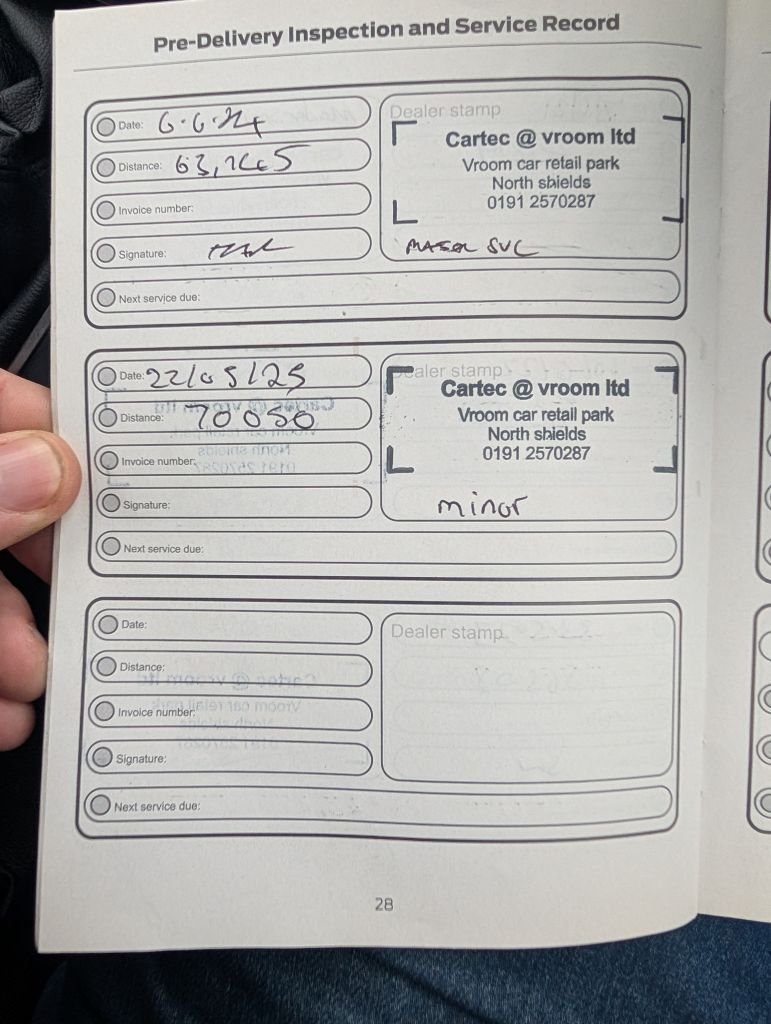 Pre-Delivery Inspection and Service Record
Date: 6.6.24
Distance:
Invoice number:
Signature:
Next service due:
Dealer stamp
Cartec @ vroom ltd
Vroom car retail park
North shields
0191 2570287
MAJOR SVC
Date: 22/05/25
Distance: 70050
Invoice number:
Signature:
Next service due:
Dealer stamp
Cartec @ vroom ltd
Vroom car retail park
North shields
0191 2570287
minor
Date:
Distance:
Invoice number:
Signature:
Next service due:
Dealer stamp
28